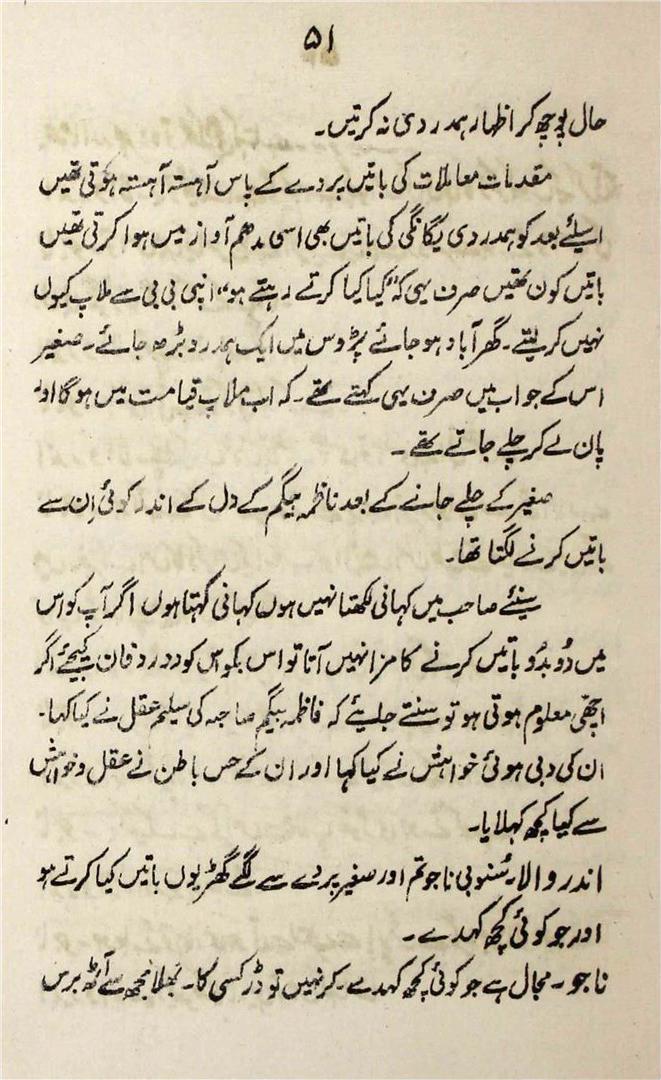 ۵۱
حال پوچھ کر اظہار ہمدردی نہ کرتیں۔
مقدمات معاملات کی باتیں پردے کے پاس آہستہ آہستہ ہوتی تھیں
اسلئے بعد کو ہمدردی یگانگی کی باتیں بھی اسی مدھم آواز میں ہوا کرتی تھیں
باتیں کون تھیں صرف یہی کہ "کیا کیا کرتے رہتے ہو" اپنی بی بی سے ملاپ کیوں
نہیں کر لیتے۔ گھر آباد ہو جائے پڑوس میں ایک ہمدرد بڑھ جائے۔ صغیر
اس کے جواب میں صرف یہی کہتے تھے۔ کہ اب ملاپ قیامت میں ہوگا اور
پان لے کر چلے جاتے تھے۔
صغیر کے چلے جانے کے بعد ناظمہ بیگم کے دل کے اندر کوئی اِن سے
باتیں کرنے لگتا تھا۔
سنئے صاحب میں کہانی لکھتا نہیں ہوں کہانی کہتا ہوں اگر آپ کو اس
میں دُوبدُو باتیں کرنے کا مزا نہیں آتا تو اس بکواس کو دور دفان کیجئے اگر
اچھی معلوم ہوتی ہو تو سنتے جلیئے کہ فاظمہ بیگم صاحبہ کی سلیم عقل نے کیا کہا۔
ان کی دبی ہوئی خواہش نے کیا کہا اور ان کے حس باطن نے عقل و خواہش
سے کیا کچھ کہلایا۔
اندر والا۔ سُنو بی ناجو تم اور صغیر پردے سے لگے گھڑیوں باتیں کیا کرتے ہو
اور جو کوئی کچھ کہدے۔
ناجو۔ مجال ہے جو کوئی کچھ کہدے۔ کر نہیں تو ڈر کسی کا۔ بھلا مجھ سے آٹھ برس